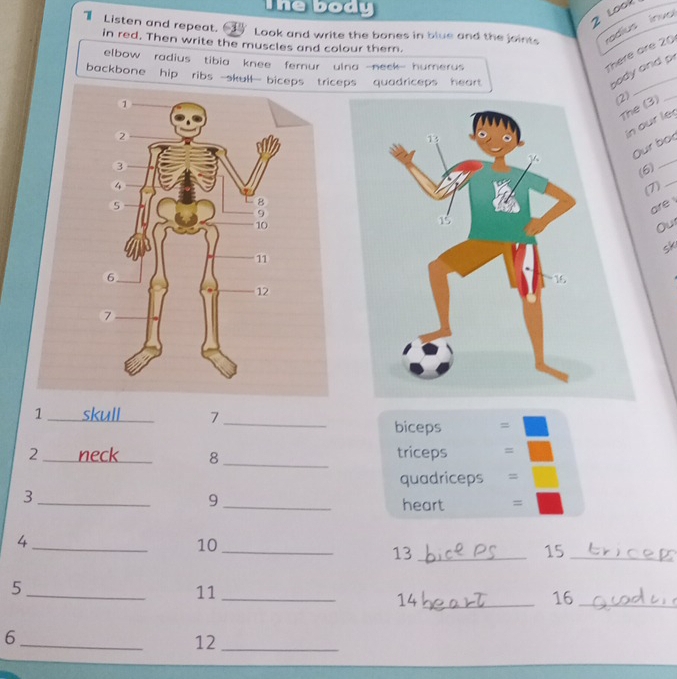 The body
1 Listen and repeat. Look and write the bones in blue and the joints
in red. Then write the muscles and colour them.
elbow radius tibia knee femur ulna neck humerus
backbone hip ribs skull biceps triceps quadriceps heart
1
2
3
4
5
6
7
8
9
10
11
12
13
14
15
16
1 skull
2 neck
3
4
5
6
7
8
9
10
11
12
biceps =
triceps =
quadriceps =
heart =
13 biceps 15 triceps
14 heart 16
2 Look
radius
There are 20
body and
(2)
The (3)
in our leg
Our bod
(6)
(7)
are
Our
sk